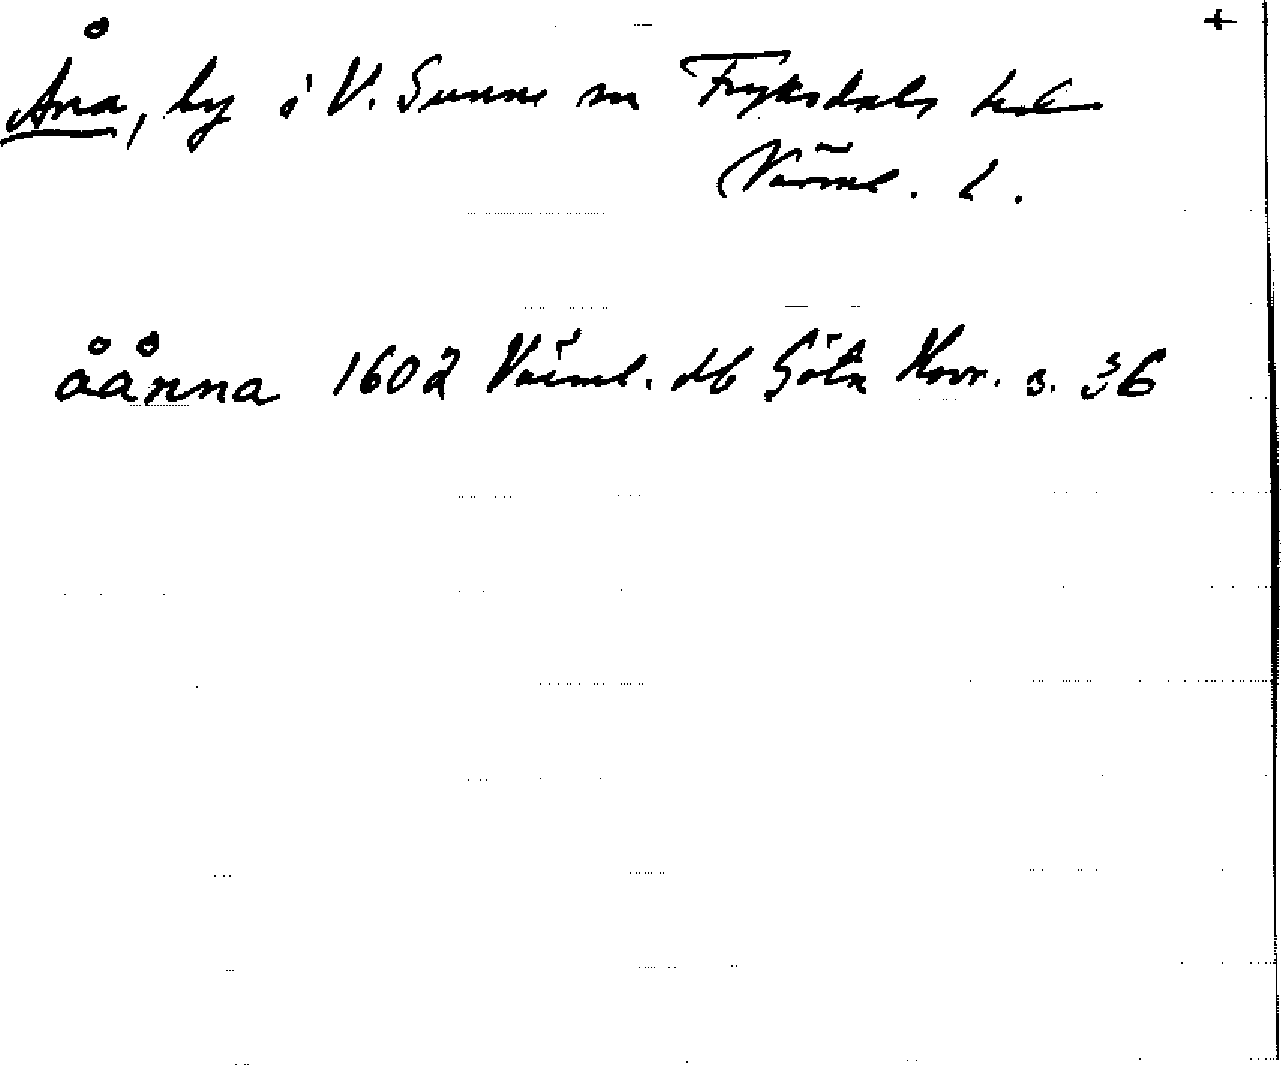 +
Åna, by i V. Sunne sn Fryksdals hd
Värml. l.
åånna 1602 Värml. db Göta Hovr. s. 36